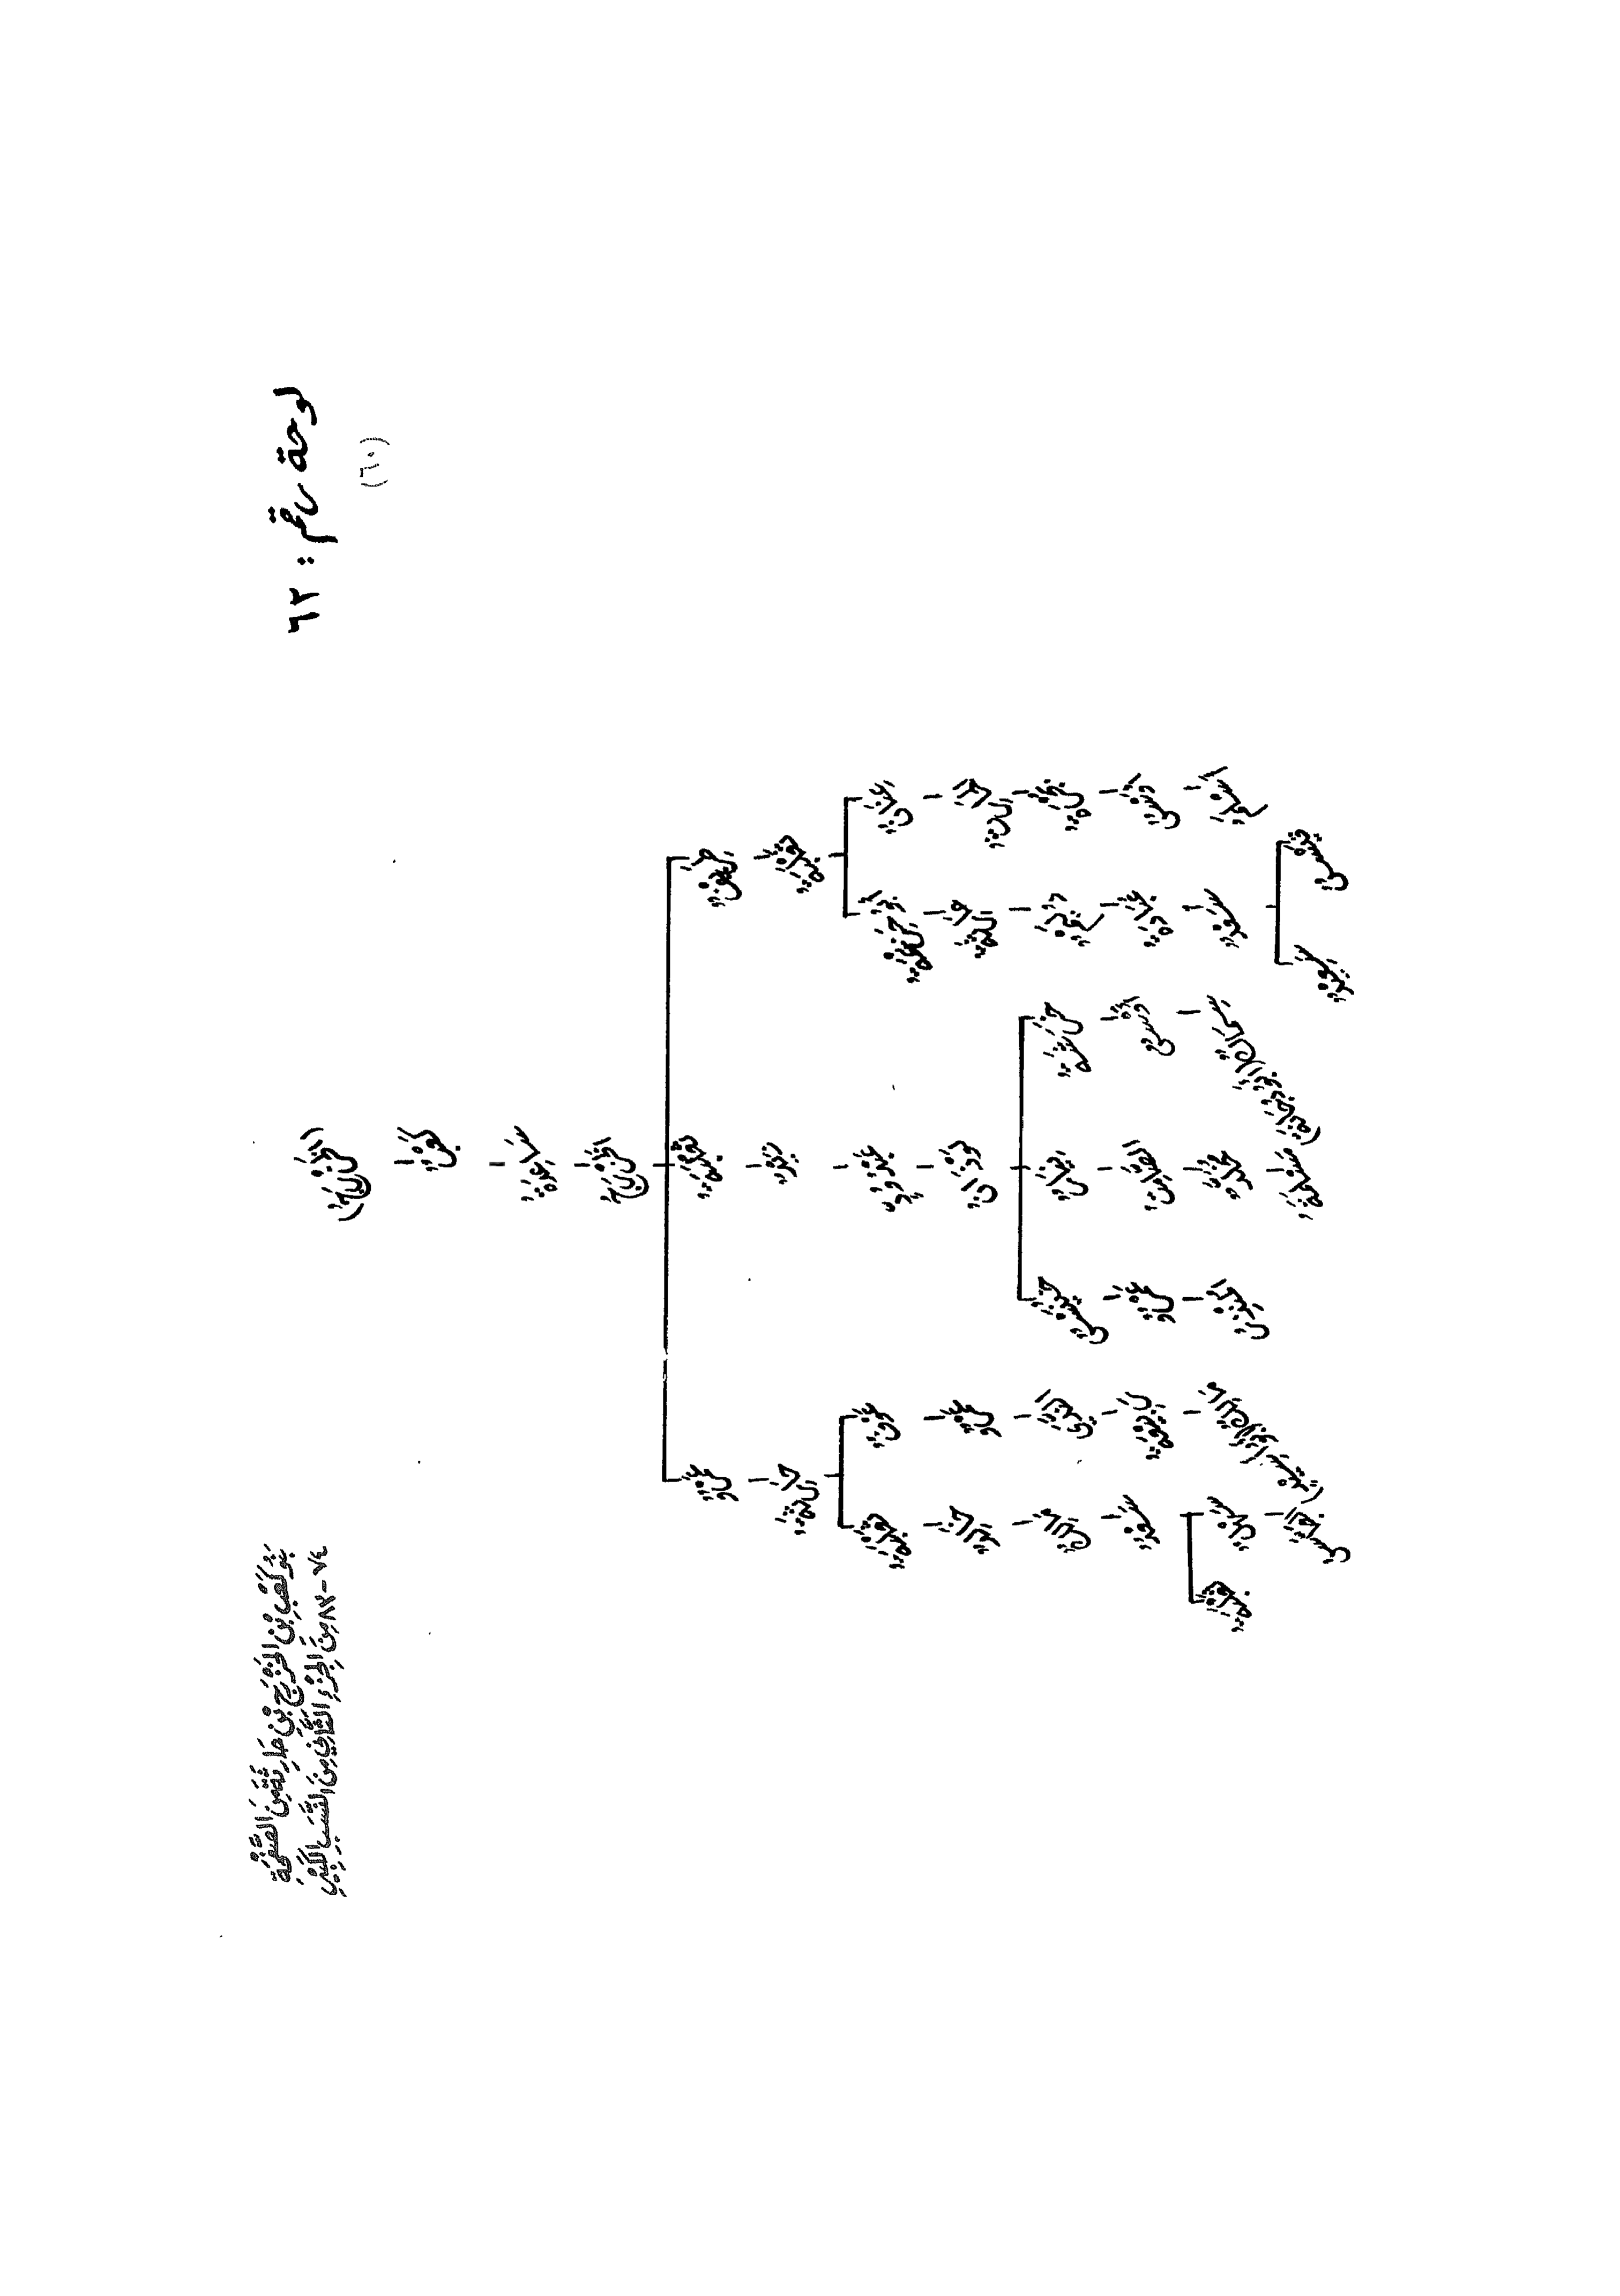 لوحة رقم : ٦٢
(٦٠)
بَنُو كَعْبِ بْنِ الخَزْرَجِ بْنِ حَارِثَةَ مِنَ الصَّفْحَةِ
٧٤-٨٣ مِنَ الجُزْءِ الثَّانِي مِنَ النَّسَبِ الكَبِيرِ
(الخَزْرَجُ)
كَعْبُ
سَاعِدَةُ
الخَزْرَجُ
طَرِيفُ ثَعْلَبَةُ عَمْرُو
ثَعْلَبَةُ زَيْدُ حَارِثَةُ
أَبُو حَزِيمَةَ عَبْدُ وُدٍّ عَوْفُ ثَعْلَبَةُ
حَارِثَةُ لَوْذَانُ عَمْرُو خَالِدُ
دُلَيْمُ خَرَشَةُ خُنَيْسُ البَدِيُّ مَالِكُ
عُبَادَةُ أَوْسُ الصَّامِتُ عَمْرُو رَبِيعَةُ سَعْدُ
سَعْدُ سِمَاكُ (أَبُو دُجَانَةَ) مُخَلَّدُ المُنْذِرُ مَالِكُ (أَبُو أُسَيْدٍ) سَهْلُ ثَعْلَبَةُ
قَيْسُ سَعِيدُ مَسْلَمَةُ العَبَّاسُ